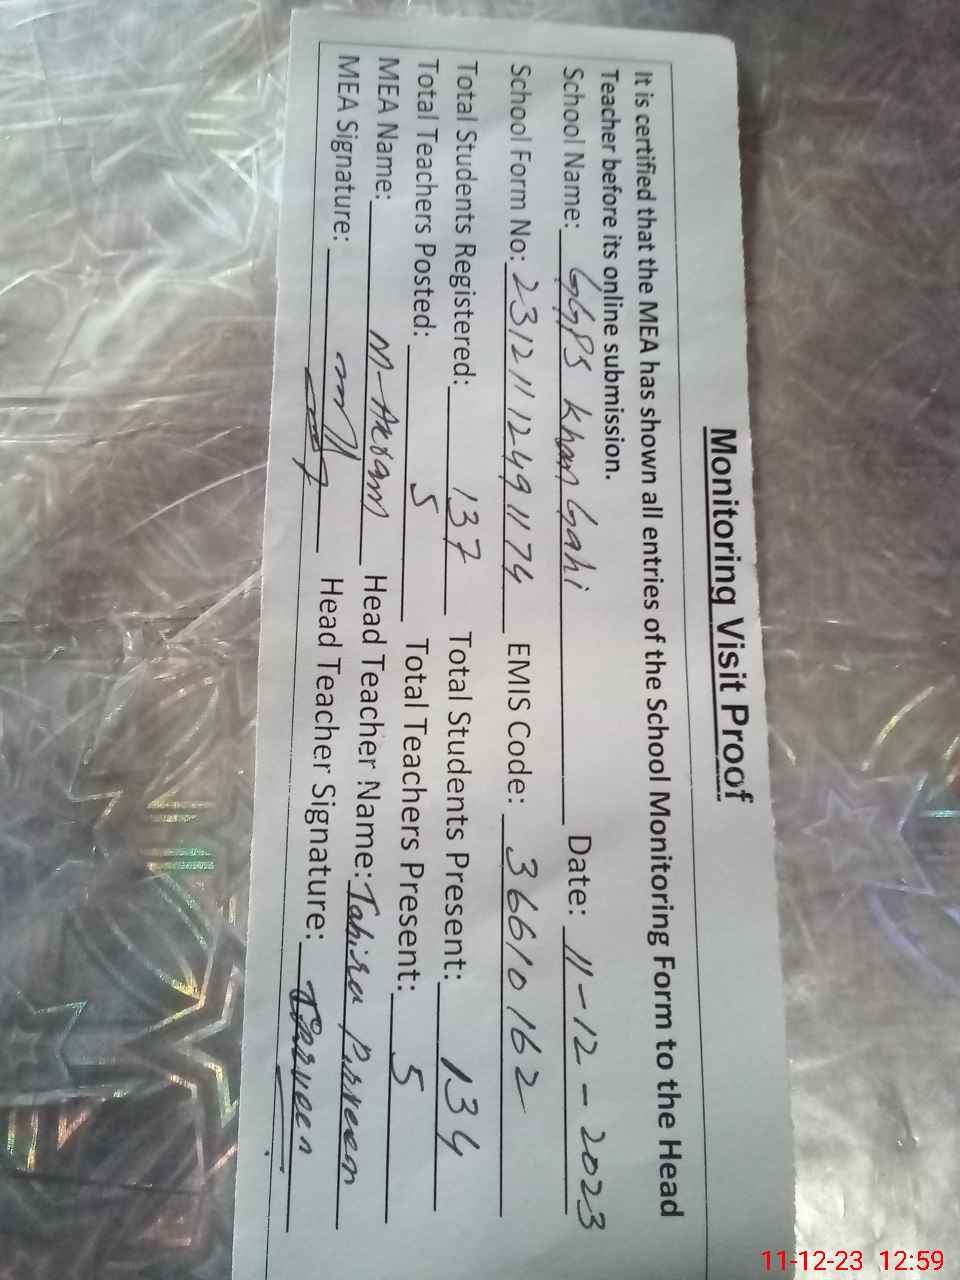 Monitoring Visit Proof
It is certified that the MEA has shown all entries of the School Monitoring Form to the Head
Teacher before its online submission.
School Name: GGPS Khan Gahi Date: 11-12-2023
School Form No: 23121112491174 EMIS Code: 36610162
Total Students Registered: 137 Total Students Present: 134
Total Teachers Posted: 5 Total Teachers Present: 5
MEA Name: M-Akram Head Teacher Name: Tahira Perveen
MEA Signature: Head Teacher Signature: TParveen
11-12-23 12:59